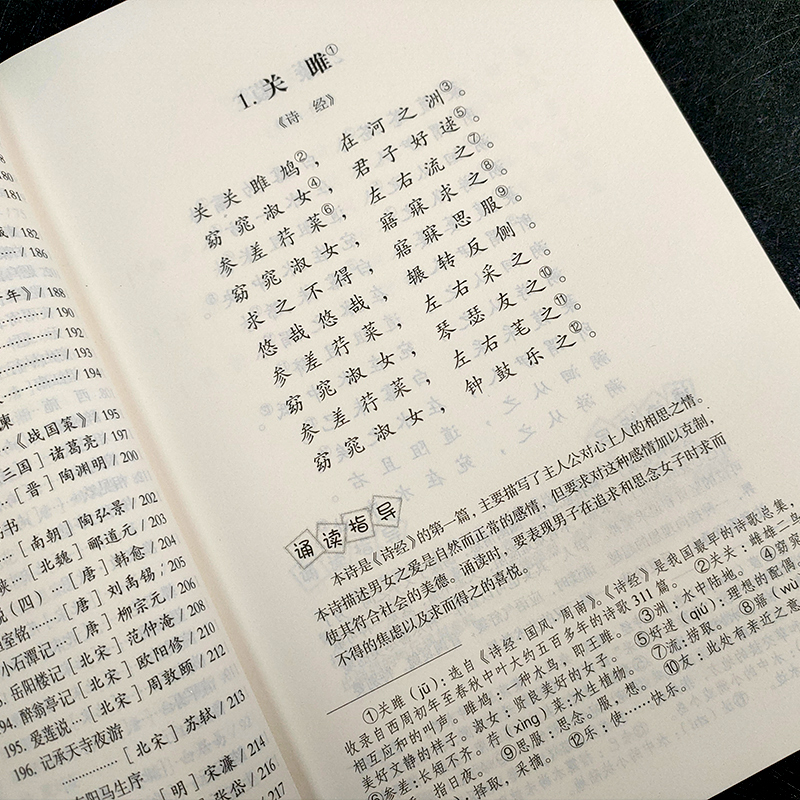 181
/ 182
/ 186
年》/ 188
/ 190
/ 192
/ 193
/ 194
谏
《战国策》/ 195
三国］诸葛亮 / 197
［晋］陶渊明 / 200
书
［南朝］陶弘景 / 202
［北魏］郦道元 / 203
（四）……［唐］韩愈 / 204
室铭……［唐］刘禹锡 / 205
小石潭记…［唐］柳宗元 / 206
岳阳楼记［北宋］范仲淹 / 208
194. 醉翁亭记［北宋］欧阳修 / 210
195. 爱莲说…［北宋］周敦颐 / 212
196. 记承天寺夜游
［北宋］苏轼 / 213
阳马生序
［明］宋濂 / 214
张岱 / 216
217
1. 关 雎①
《诗 经》
关关雎鸠②，在河之洲③。
窈窕淑女④，君子好逑⑤。
参差荇菜⑥，左右流之⑦。
窈窕淑女，寤寐求之⑧。
求之不得，寤寐思服⑨。
悠哉悠哉，辗转反侧。
参差荇菜，左右采之。
窈窕淑女，琴瑟友之⑩。
参差荇菜，左右芼之⑪。
窈窕淑女，钟鼓乐之⑫。
诵读指导
本诗是《诗经》的第一篇，主要描写了主人公对心上人的相思之情。
本诗描述男女之爱是自然而正常的感情，但要求对这种感情加以克制，
使其符合社会的美德。诵读时，要表现男子在追求和思念女子时求而
不得的焦虑以及求而得之的喜悦。
①关雎（jū）：选自《诗经·国风·周南》。《诗经》是我国最早的诗歌总集，
收录自西周初年至春秋中叶大约五百多年的诗歌 311 篇。②关关：雌雄二鸟
相互应和的叫声。雎鸠：一种水鸟，即王雎。③洲：水中陆地。④窈窕
美好文静的样子。淑女：贤良美好的女子。⑤好逑（qiú）：理想的配偶。
⑥参差：长短不齐。荇（xìng）菜：水生植物。⑦流：捞取。⑧寤（wù）
指日夜。⑨思服：思念。服，想。⑩友：此处有亲近之意
择取，采摘。⑫乐：使……快乐。